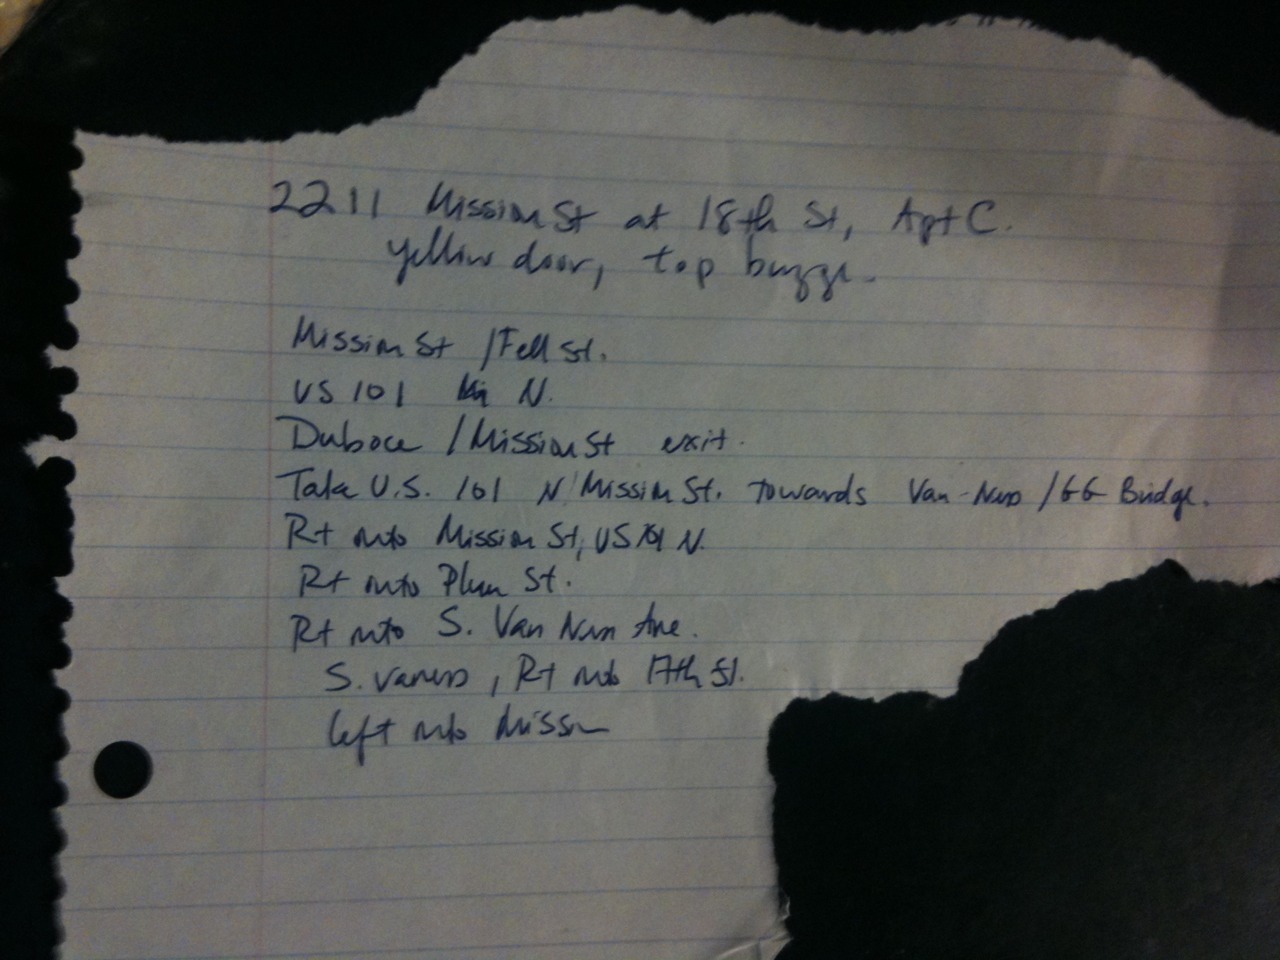 2211 Mission St at 18th St, Apt C.
yellow door, top buzzer.
Mission St / Fell St.
US 101 N.
Duboce / Mission St exit.
Take U.S. 101 N / Mission St. towards Van-Ness / GG Bridge.
Rt onto Mission St, US 101 N.
Rt onto Plum St.
Rt onto S. Van Ness Ave.
S. Vaness, Rt onto 17th St.
left onto Mission